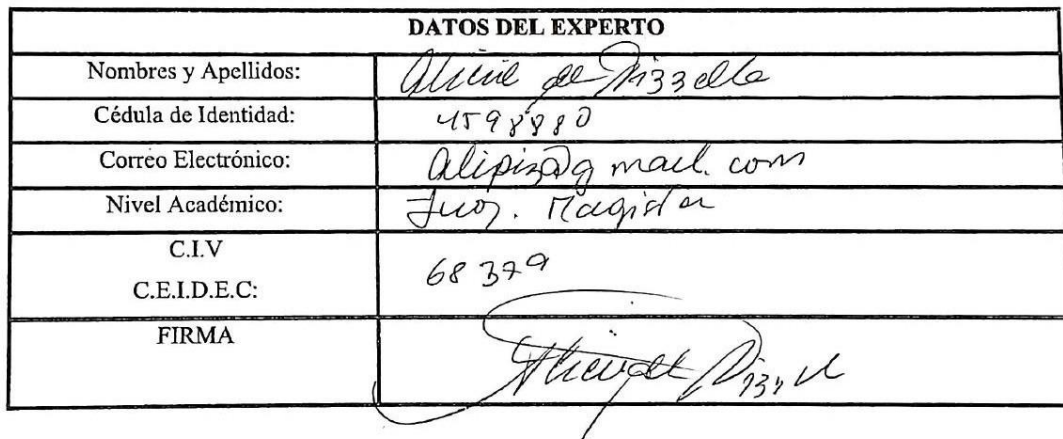 DATOS DEL EXPERTO
Nombres y Apellidos: Alicia de Pizzella
Cédula de Identidad: 4598880
Correo Electrónico: alipiz@gmail.com
Nivel Académico: Magister
C.I.V
C.E.I.D.E.C: 68379
FIRMA